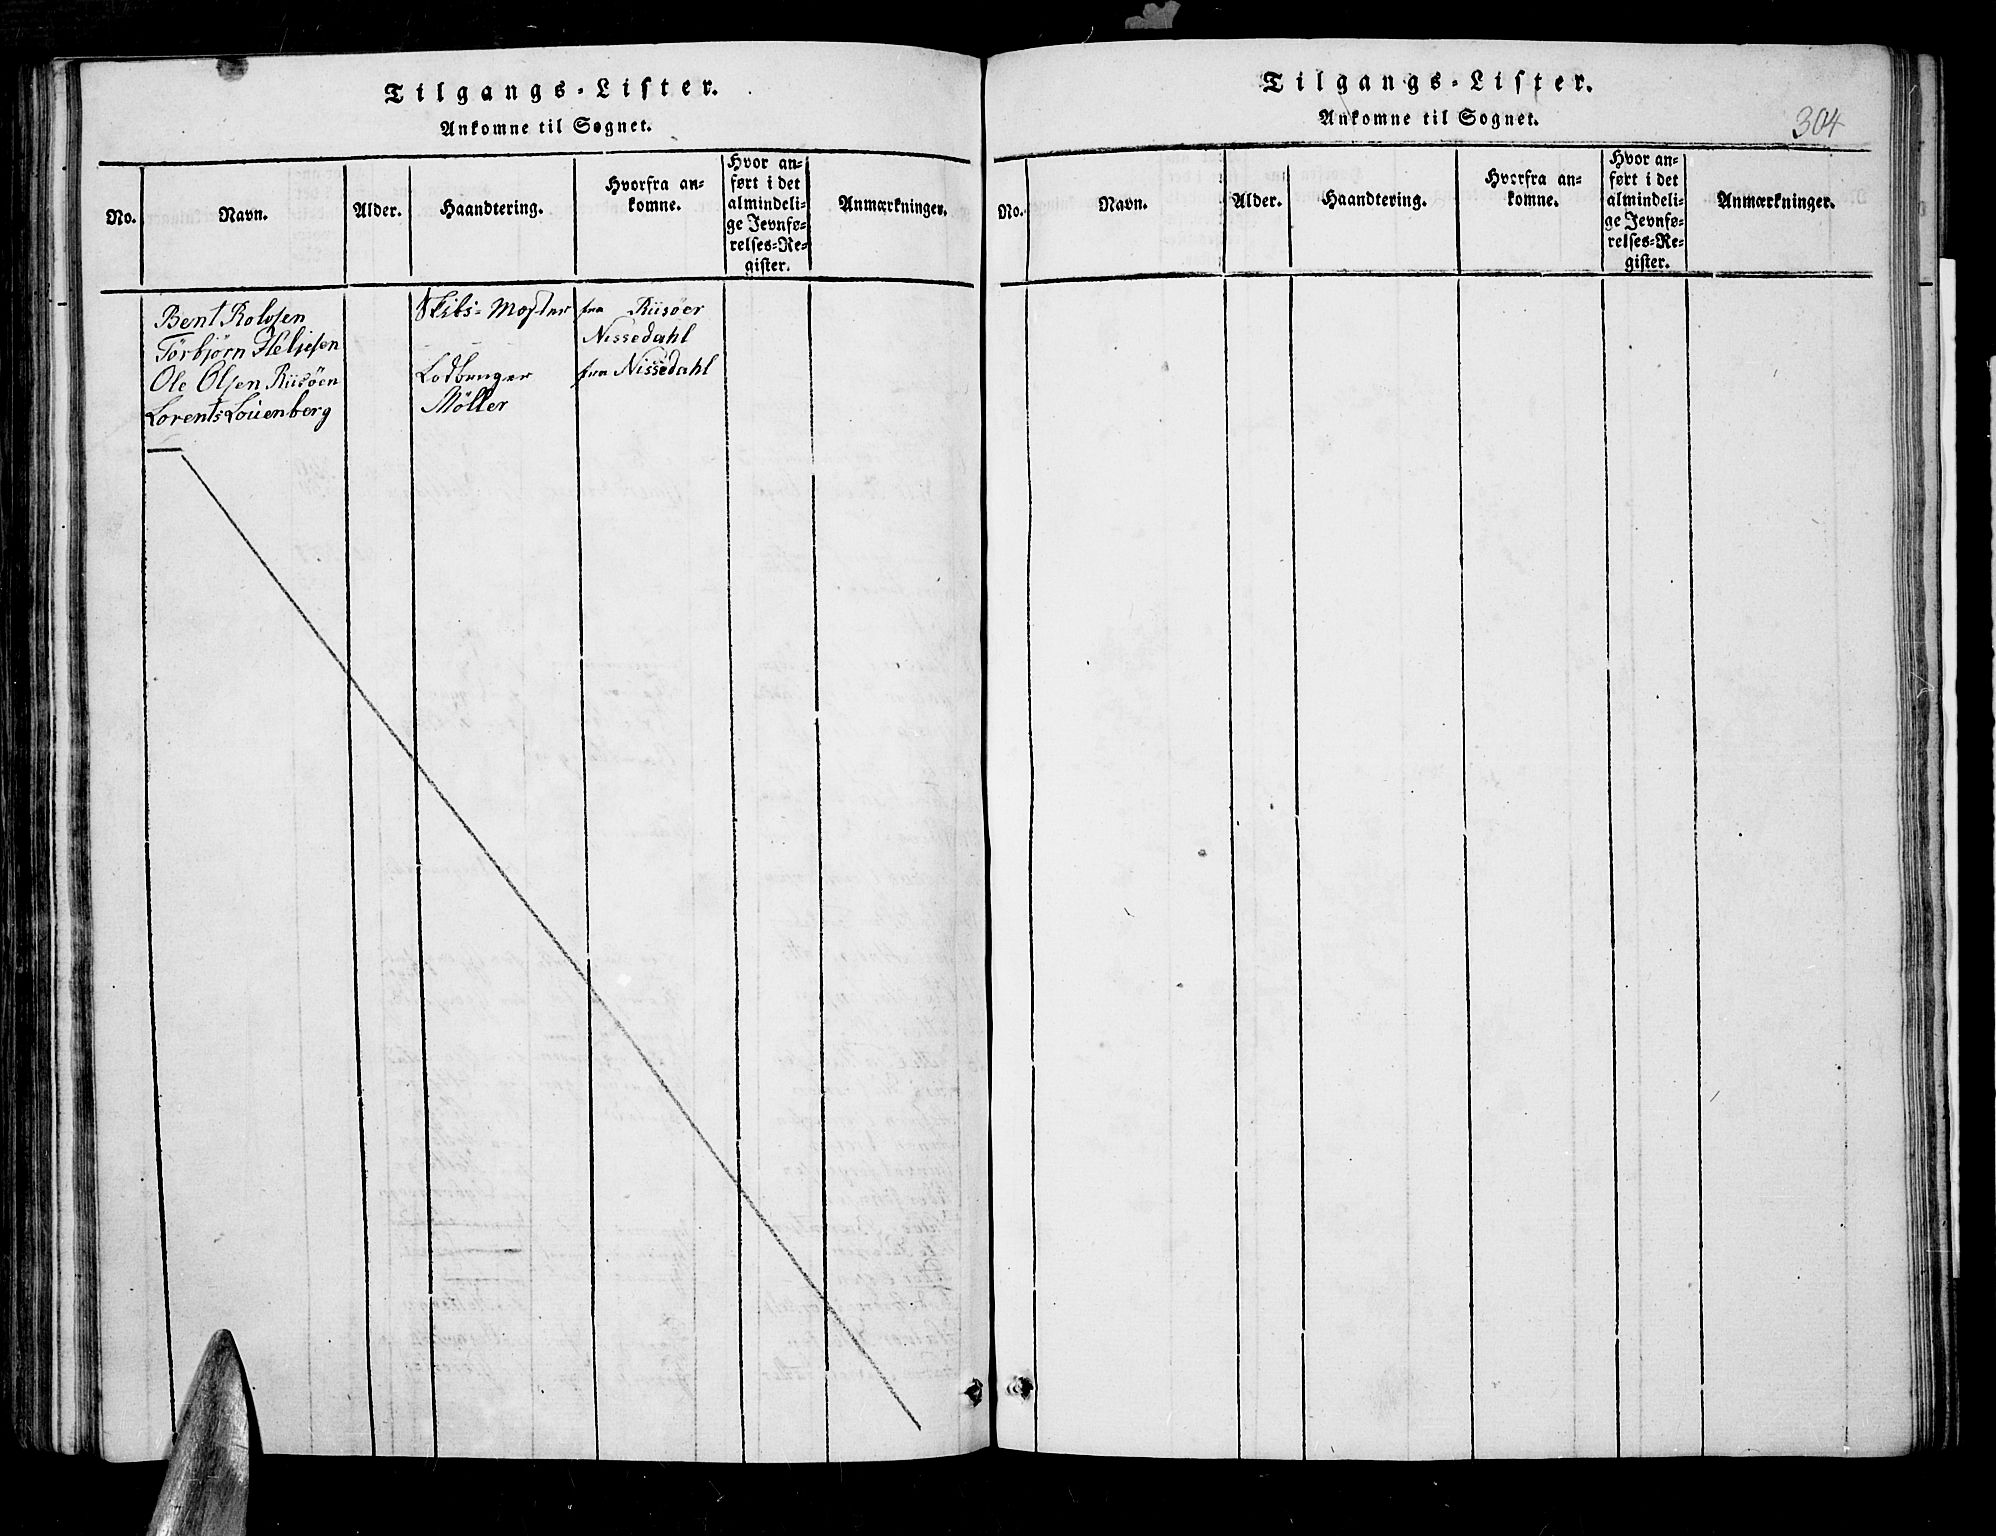 Tilgangs-Lister.
Ankomne til Sognet.
No.
Navn.
Alder.
Haandtering.
Hvorfra an-
komne.
Hvor an-
ført i det
almindeli-
ge Jevnfø-
relses-Re-
gister.
Anmærkninger.
Bent Rolvsen Skibs-Mester fra Riisöer
Törbjörn Heljesen Nissedahl
Ole Olsen Riisöen fra Nissedahl
Lorents Löuenberg Möller
Tilgangs-Lister.
Ankomne til Sognet.
304
No.
Navn.
Alder.
Haandtering.
Hvorfra an-
komne.
Hvor an-
ført i det
almindeli-
ge Jevnfø-
relses-Re-
gister.
Anmærkninger.